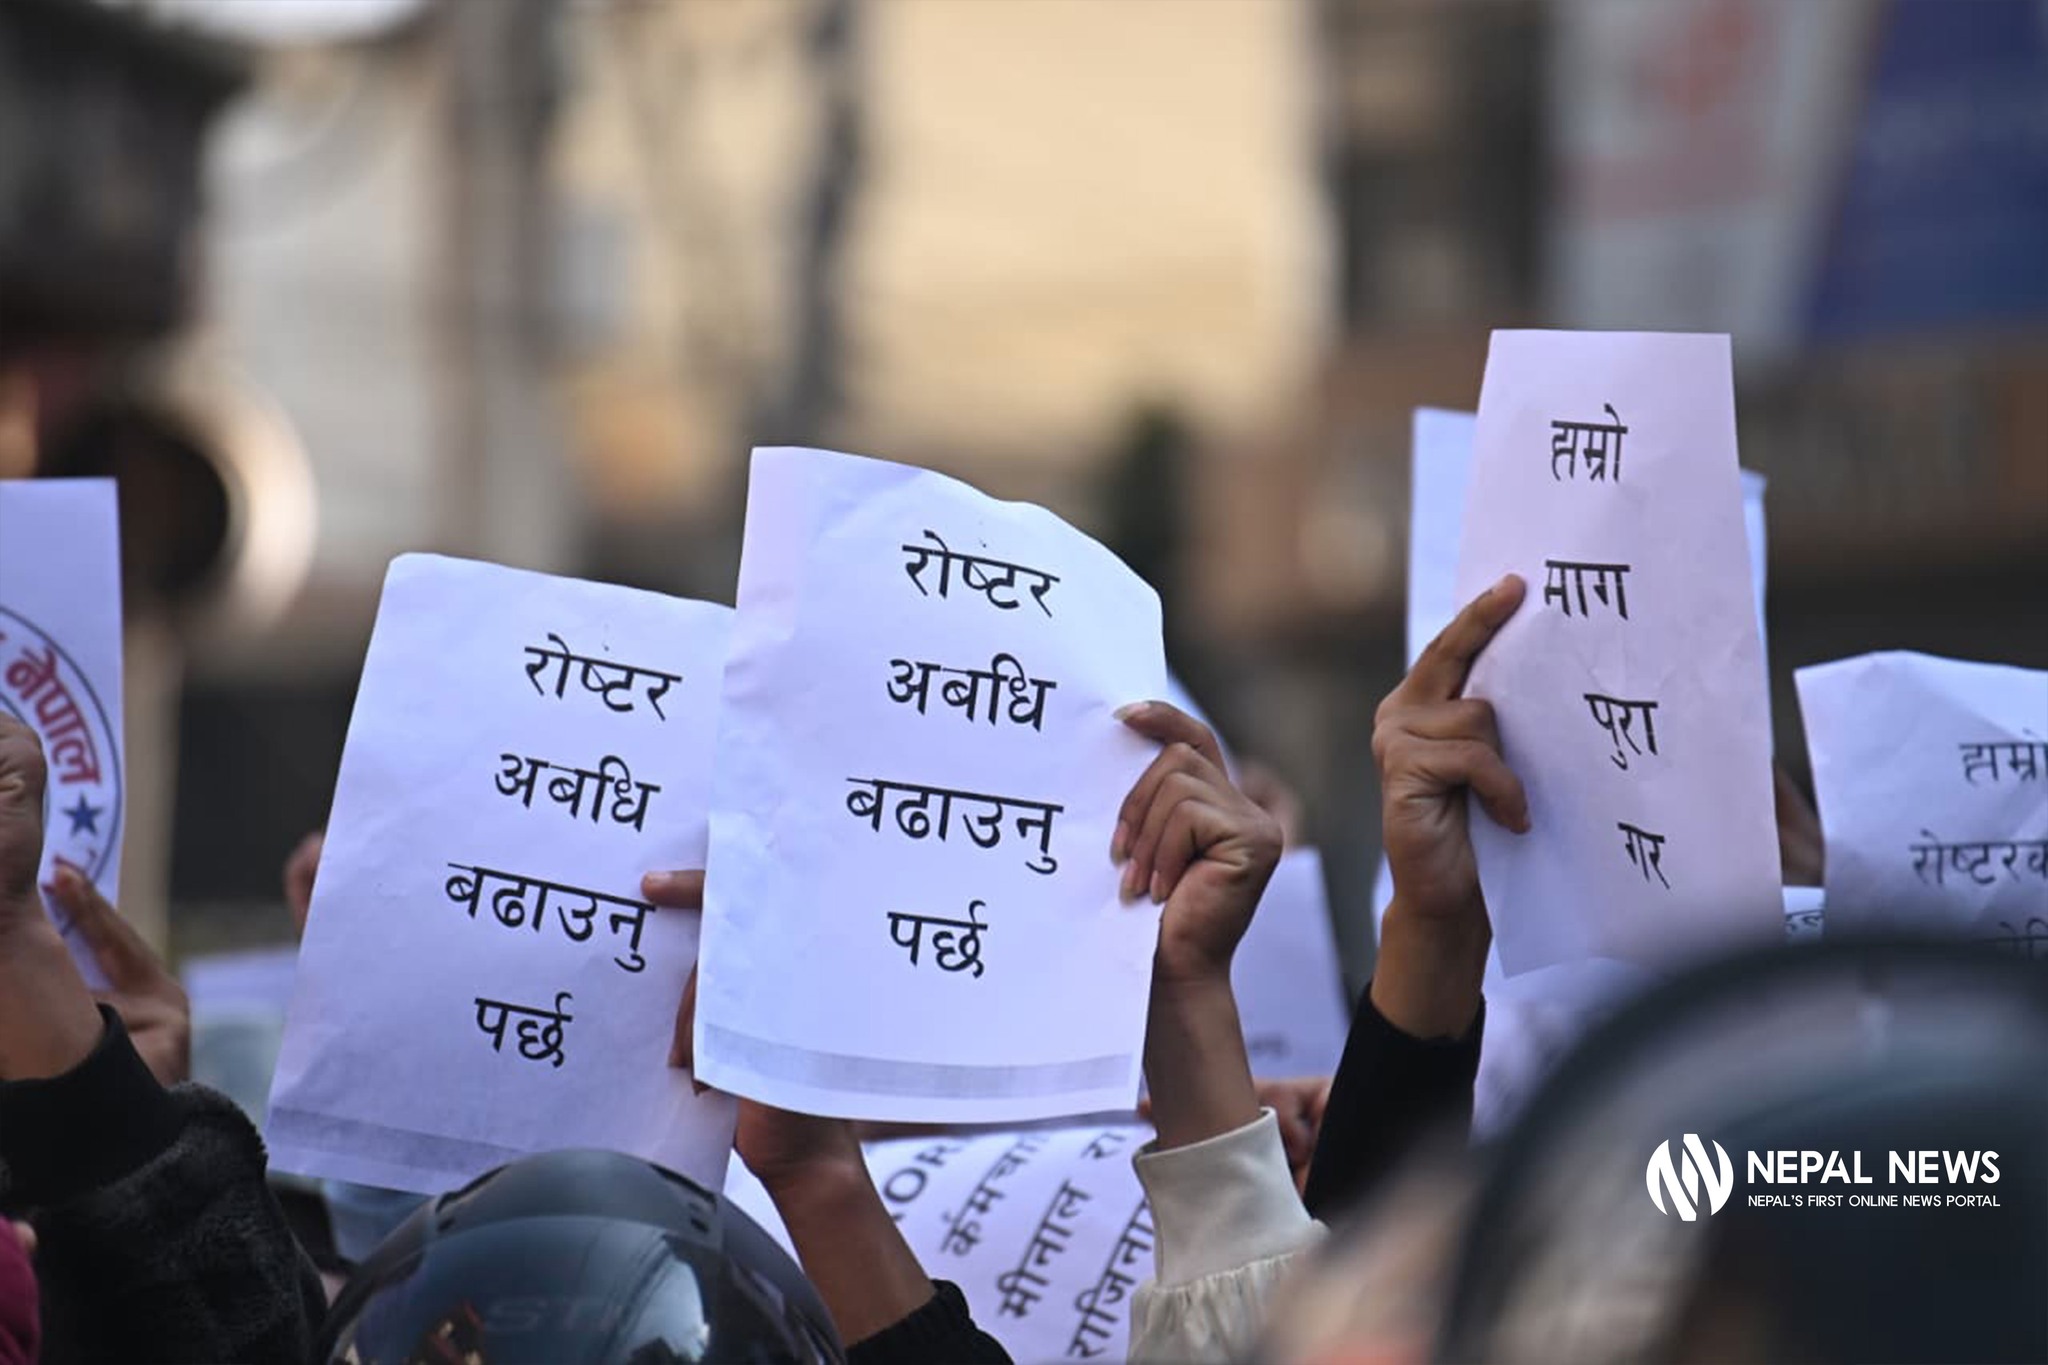 नेपाल
रोष्टर
अबधि
बढाउनु
पर्छ
रोष्टर
अबधि
बढाउनु
पर्छ
हाम्रो
माग
पुरा
गर
मीनाल
NEPAL NEWS
NEPAL'S FIRST ONLINE NEWS PORTAL